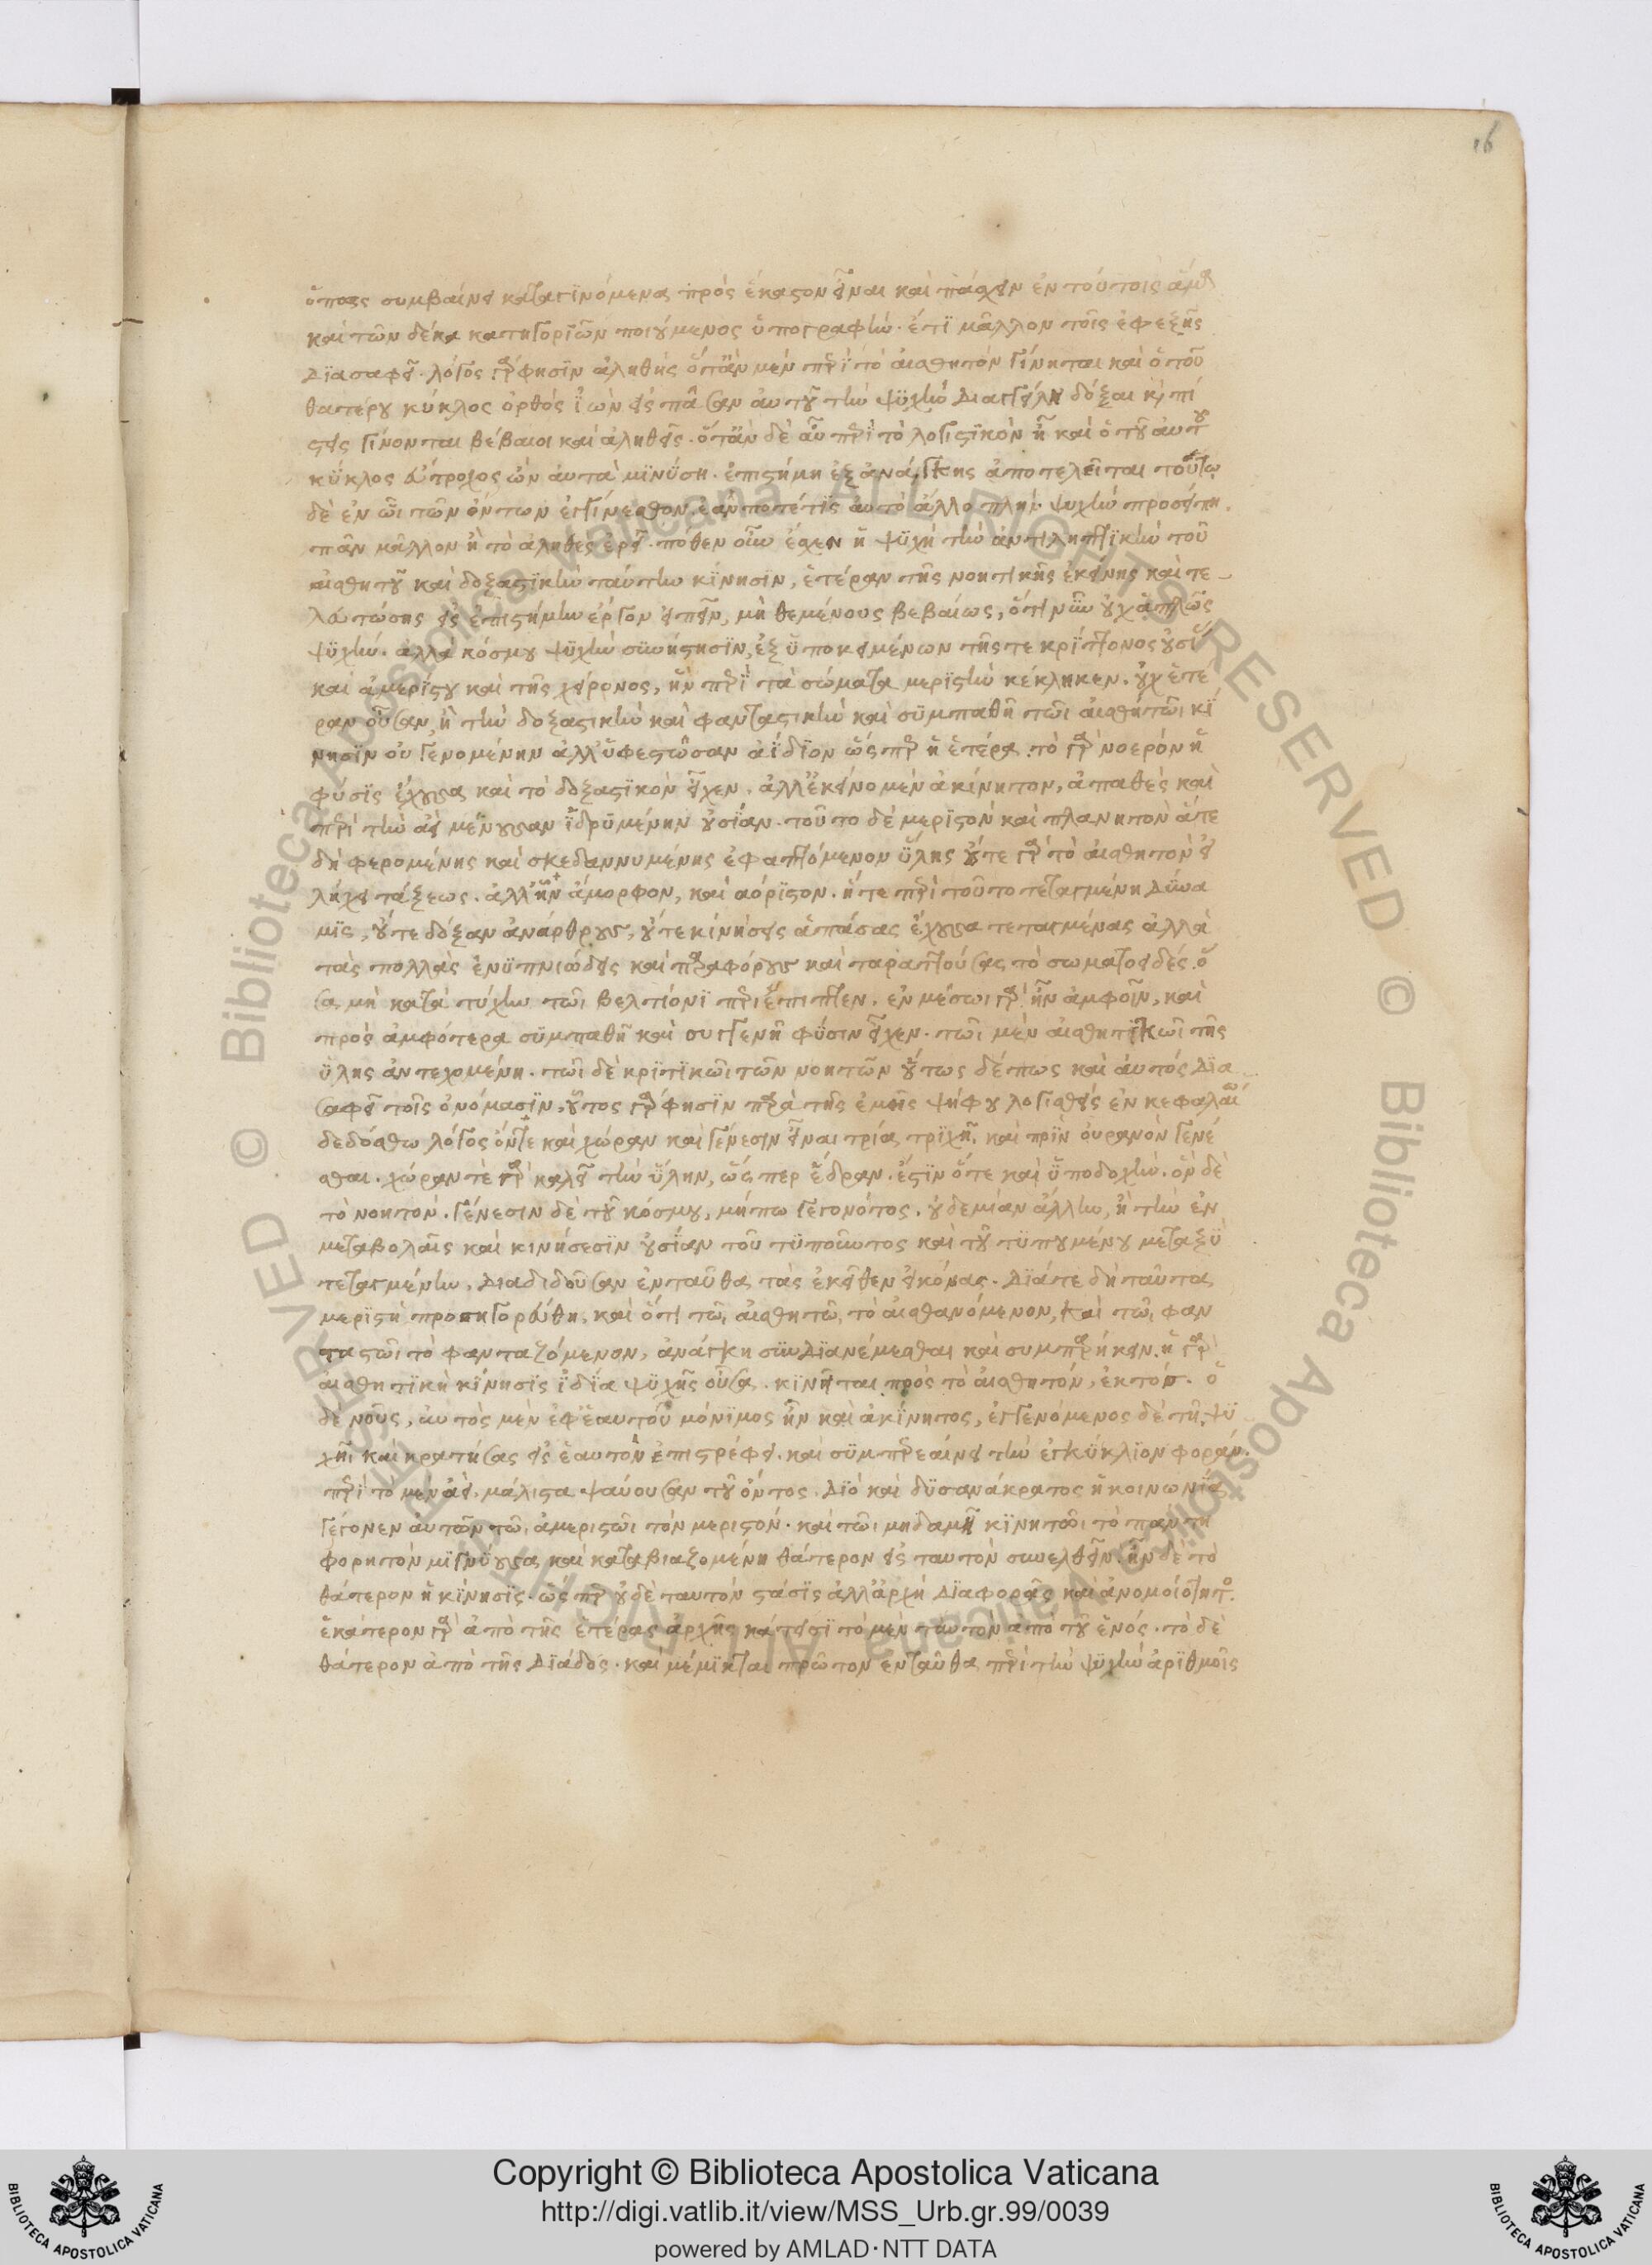 16
ὅπως συμβαίνει κατὰ γινόμενα πρὸς ἕκαστον εἶναι καὶ πάσχειν ἐν τούτοις ἅμα
καὶ τῶν δέκα κατηγοριῶν ποιούμενος ὑπογραφὴν. ἔτι μᾶλλον τοῖς ἐφεξῆς
διασαφεῖ. λόγος γὰρ φησὶν ἀληθὴς ὅταν μὲν περὶ τὸ αἰσθητὸν γίνηται καὶ ὁ τοῦ
θατέρου κύκλος ὀρθὸς ἰὼν εἰς πᾶσαν αὐτοῦ τὴν ψυχὴν διαγγείλη δόξαι καὶ πί
στεις γίνονται βέβαιοι καὶ ἀληθεῖς. ὅταν δὲ αὖ περὶ τὸ λογιστικὸν ἦ καὶ ὁ τοῦ αὐτοῦ
κύκλος εὔτροχος ὢν αὐτὰ μινύση. ἐπιστήμη ἐξ ἀνάγκης ἀποτελεῖται τούτω
δὲ ἐν ὧι τῶν ὄντων ἐγγίνεσθον. ἐάν ποτέ τις αὐτὸ ἄλλο πλὴν ψυχὴν προσείπη.
πᾶν μᾶλλον ἢ τὸ ἀληθὲς ἐρεῖ. πόθεν οὖν ἔσχεν ἡ ψυχὴ τὴν ἀντιληπτικὴν τοῦ
αἰσθητοῦ καὶ δοξαστικὴν ταύτην κίνησιν, ἑτέραν τῆς νοητικῆς ἐκείνης καὶ τε
λευτώσης εἰς ἐπιστήμην ἔργον εἰπεῖν, μὴ θεμένους βεβαίως, ὅτι νῦν οὐχ ἁπλῶς
ψυχὴν. ἀλλὰ κόσμου ψυχὴν συνίστησιν, ἐξ ὑποκειμένων τῆς τε κρίττονος οὐσίας
καὶ ἀμερίστου καὶ τῆς χείρονος, ἣν περὶ τὰ σώματα μεριστὴν κέκληκεν. οὐχ ἑτέ
ραν οὖσαν, ἢ τὴν δοξαστικὴν καὶ φανταστικὴν καὶ συμπαθῆ τῶι αἰσθητῶι κί
νησιν οὐ γενομένην ἀλλ᾽ ὑφεστῶσαν ἀΐδιον ὥσπερ ἡ ἑτέρα. τὸ γὰρ νοερὸν ἡ
φύσις ἔχουσα καὶ τὸ δοξαστικὸν εἶχεν. ἀλλ᾽ ἐκεῖνο μὲν ἀκίνητον, ἀπαθὲς καὶ
περὶ τὴν ἀεὶ μένουσαν ἱδρυμένην οὐσίαν. τοῦτο δὲ μεριστὸν καὶ πλανητὸν ἅτε
δὴ φερομένης καὶ σκεδαννυμένης ἐφαπτόμενον ὕλης οὔτε γὰρ τὸ αἰσθητὸν εἰ
λήχει τάξεως. ἀλλ᾽ ἦν ἄμορφον, καὶ ἀόριστον. ἥ τε περὶ τοῦτο τεταγμένη δύνα
μις, οὔτε δόξαν ἀνάρθρους, οὔτε κινήσεις ἁπάσας ἔχουσα τεταγμένας ἀλλὰ
τὰς πολλὰς ἐνυπνιώδεις καὶ παραφόρους καὶ ταραττούσας τὸ σωματοειδές. ὅ
σα μὴ κατὰ τύχην τῶι βελτίονι περιέπιπτεν. ἐν μέσωι γὰρ ἦν ἀμφοῖν, καὶ
πρὸς ἀμφότερα συμπαθῆ καὶ συγγενῆ φύσιν εἶχεν. τῶι μὲν αἰσθητικῶι τῆς
ὕλης ἀντεχομένη. τῶι δὲ κριτικῶι τῶν νοητῶν οὕτως δέ πως καὶ αὐτός δια
σαφεῖ τοῖς ὀνόμασιν, οὗτος γὰρ φησὶν παρὰ τῆς ἐμῆς ψήφου λογισθεὶς ἐν κεφαλαίω
δεδόσθω λόγος ὄν τε καὶ χώραν καὶ γένεσιν εἶναι τρία τριχῆ. καὶ πρὶν οὐρανὸν γενέ
σθαι. χώραν τὲ γὰρ καλεῖ τὴν ὕλην, ὥσπερ ἕδραν. ἔστιν ὅτε καὶ ὑποδοχὴν. ὂν δὲ
τὸ νοητόν. γένεσιν δὲ τοῦ κόσμου, μήπω γεγονότος. οὐδεμίαν ἄλλην, ἢ τὴν ἐν
μεταβολαῖς καὶ κινήσεσιν οὐσίαν τοῦ τυποῦντος καὶ τοῦ τυπουμένου μεταξὺ
τεταγμένην, διαδιδοῦσαν ἐνταῦθα τὰς ἐκεῖθεν εἰκόνας. διά τε δὴ ταῦτα
μεριστὴ προσηγορεύθη, καὶ ὅτι τῶι αἰσθητῶι τὸ αἰσθανόμενον, καὶ τῶι φαν
ταστῶι τὸ φανταζόμενον, ἀνάγκη συνδιανέμεσθαι καὶ συμπαρήκειν. ἡ γὰρ
αἰσθητικὴ κίνησις ἰδία ψυχῆς οὖσα. κινεῖται πρὸς τὸ αἰσθητόν, ἐκτός. ὁ
δὲ νοῦς, αὐτὸς μὲν ἐφ᾽ ἑαυτοῦ μόνιμος ἦν καὶ ἀκίνητος, ἐγγενόμενος δὲ τῆι ψυ
χῆι καὶ κρατήσας εἰς ἑαυτὸν ἐπιστρέφει. καὶ συμπεραίνει τὴν ἐγκύκλιον φορὰν.
περὶ τὸ μὲν ἀεὶ, μάλιστα ψαύουσαν τοῦ ὄντος. διὸ καὶ δυσανάκρατος ἡ κοινωνία
γέγονεν αὐτῶν τῶι ἀμεριστῶι τὸν μεριστόν. καὶ τῶι μηδαμῆ κινητῶι τὸ πάντη
φορητὸν μιγνύουσα καὶ καταβιαζομένη θάτερον εἰς ταυτὸν συνελθεῖν. ἦν δὲ τὸ
θάτερον ἡ κίνησις. ὥσπερ οὐδὲ ταυτὸν στάσις ἀλλ᾽ ἀρχὴ διαφορᾶς καὶ ἀνομοιότητος.
ἑκάτερον γὰρ ἀπὸ τῆς ἑτέρας ἀρχῆς κάτεισι τὸ μὲν ταυτὸν ἀπὸ τοῦ ἑνός. τὸ δὲ
θάτερον ἀπὸ τῆς διάδος. καὶ μέμικται πρῶτον ἐνταῦθα περὶ τὴν ψυχὴν ἀριθμοῖς
Copyright © Biblioteca Apostolica Vaticana
http://digi.vatlib.it/view/MSS_Urb.gr.99/0039
powered by AMLAD·NTT DATA
BIBLIOTECA APOSTOLICA VATICANA
BIBLIOTECA APOSTOLICA VATICANA